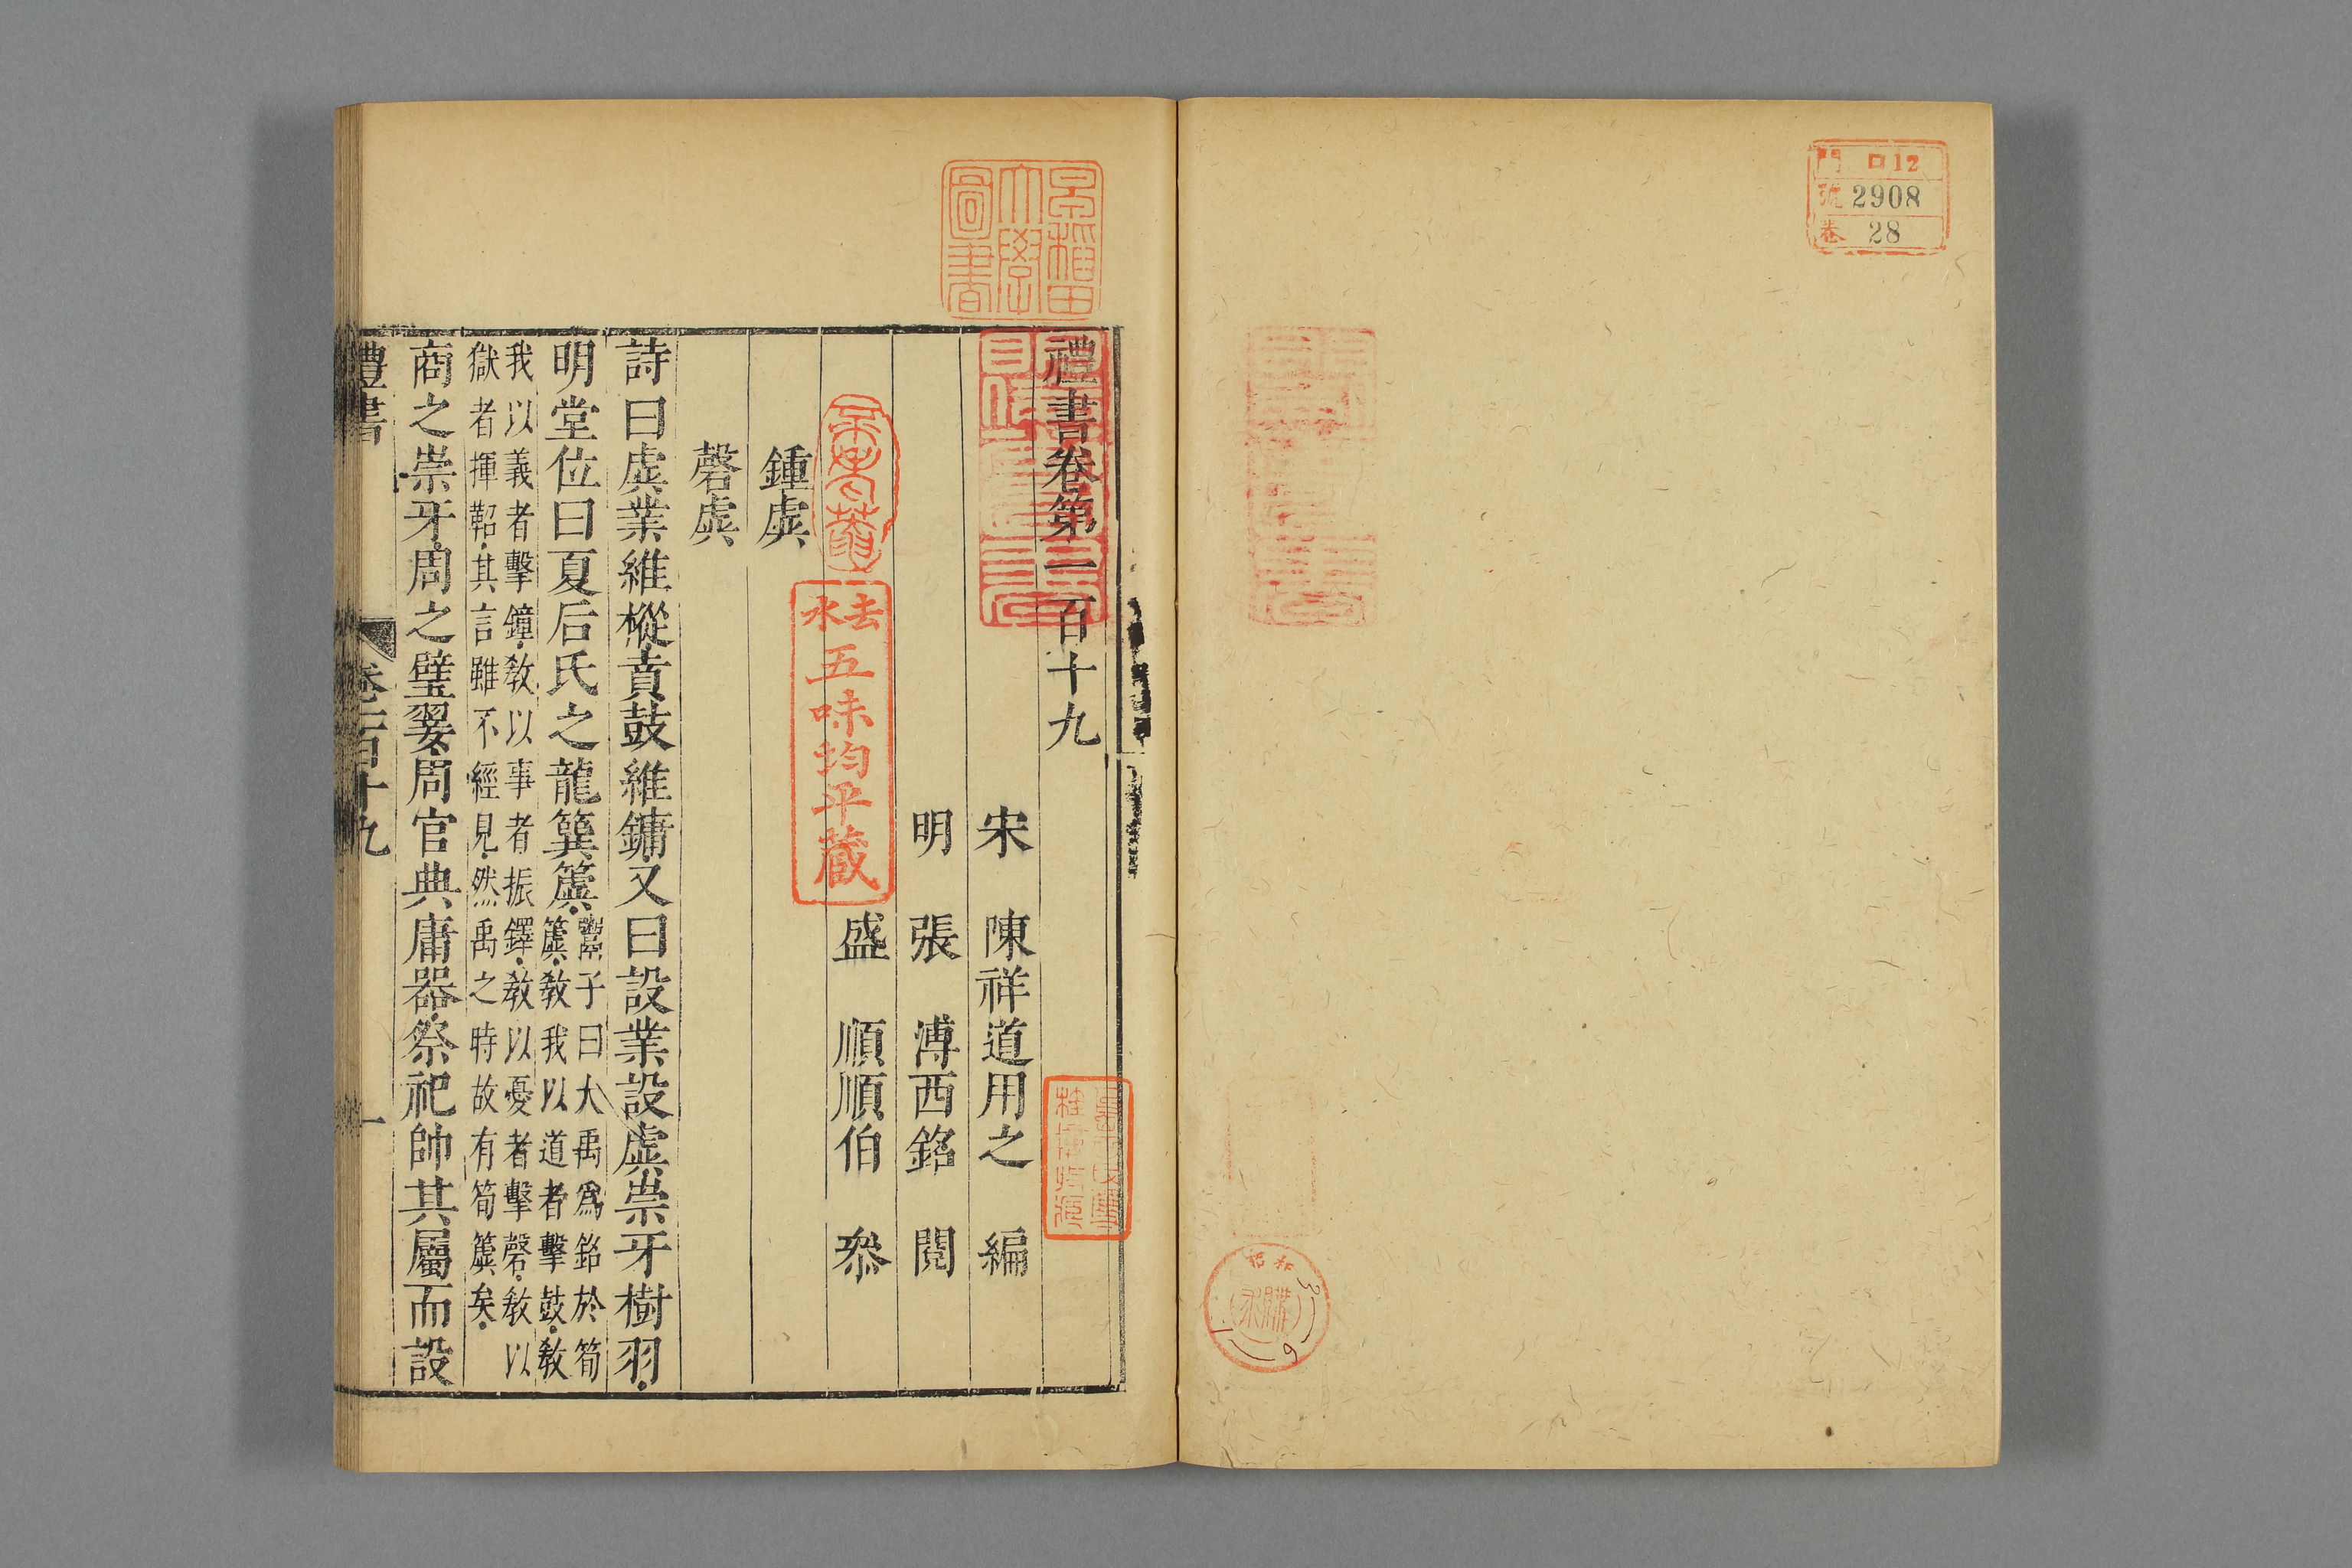 門 口12
號 2908
卷 28
早稲田大學圖書
禮書卷第一百十九
宋 陳祥道用之 編
明 張 溥西銘 閱
盛 順順伯 叅
去水五味均平藏
鍾虡
磬虡
詩曰虡業維樅賁鼓維鏞又曰設業設虡崇牙樹羽
明堂位曰夏后氏之龍簨簴鬻子曰大禹爲銘於筍
簴敎我以道者擊鼓敎
我以義者擊鐘敎以事者振鐸敎以憂者擊磬敎以
獄者揮鞀其言雖不經見然禹之時故有筍簴矣
商之崇牙周之璧翣周官典庸器祭祀帥其屬而設
禮書 卷一百十九 一